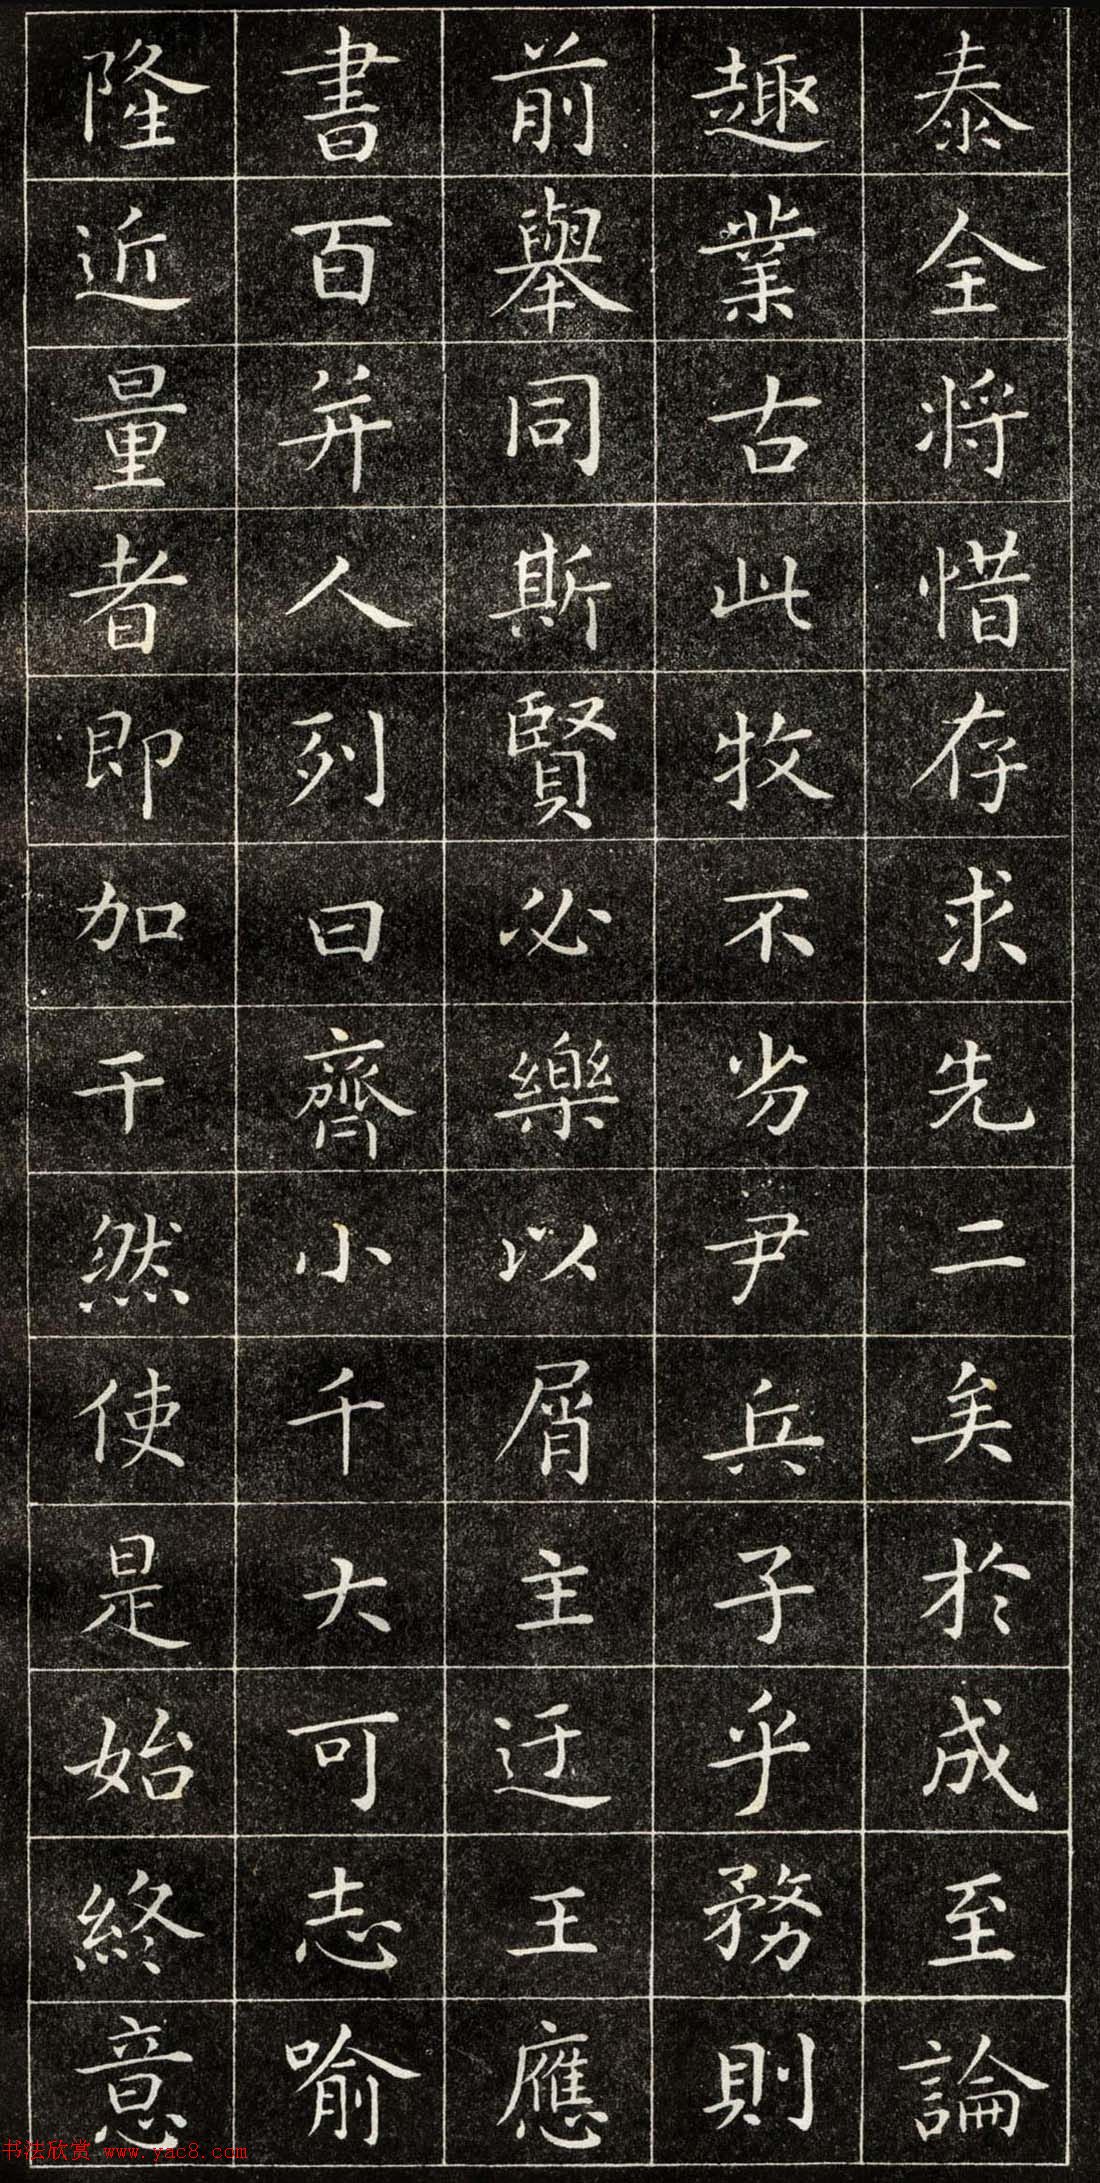 泰全将惜存求先二矣於成至論
趣業古此牧不劣尹兵子乎務則
前舉同斯賢必樂以屑主迁王應
書百并人列曰齊小千大可志喻
隆近量者即加干然使是始終意
书法欣赏 www.yac8.com